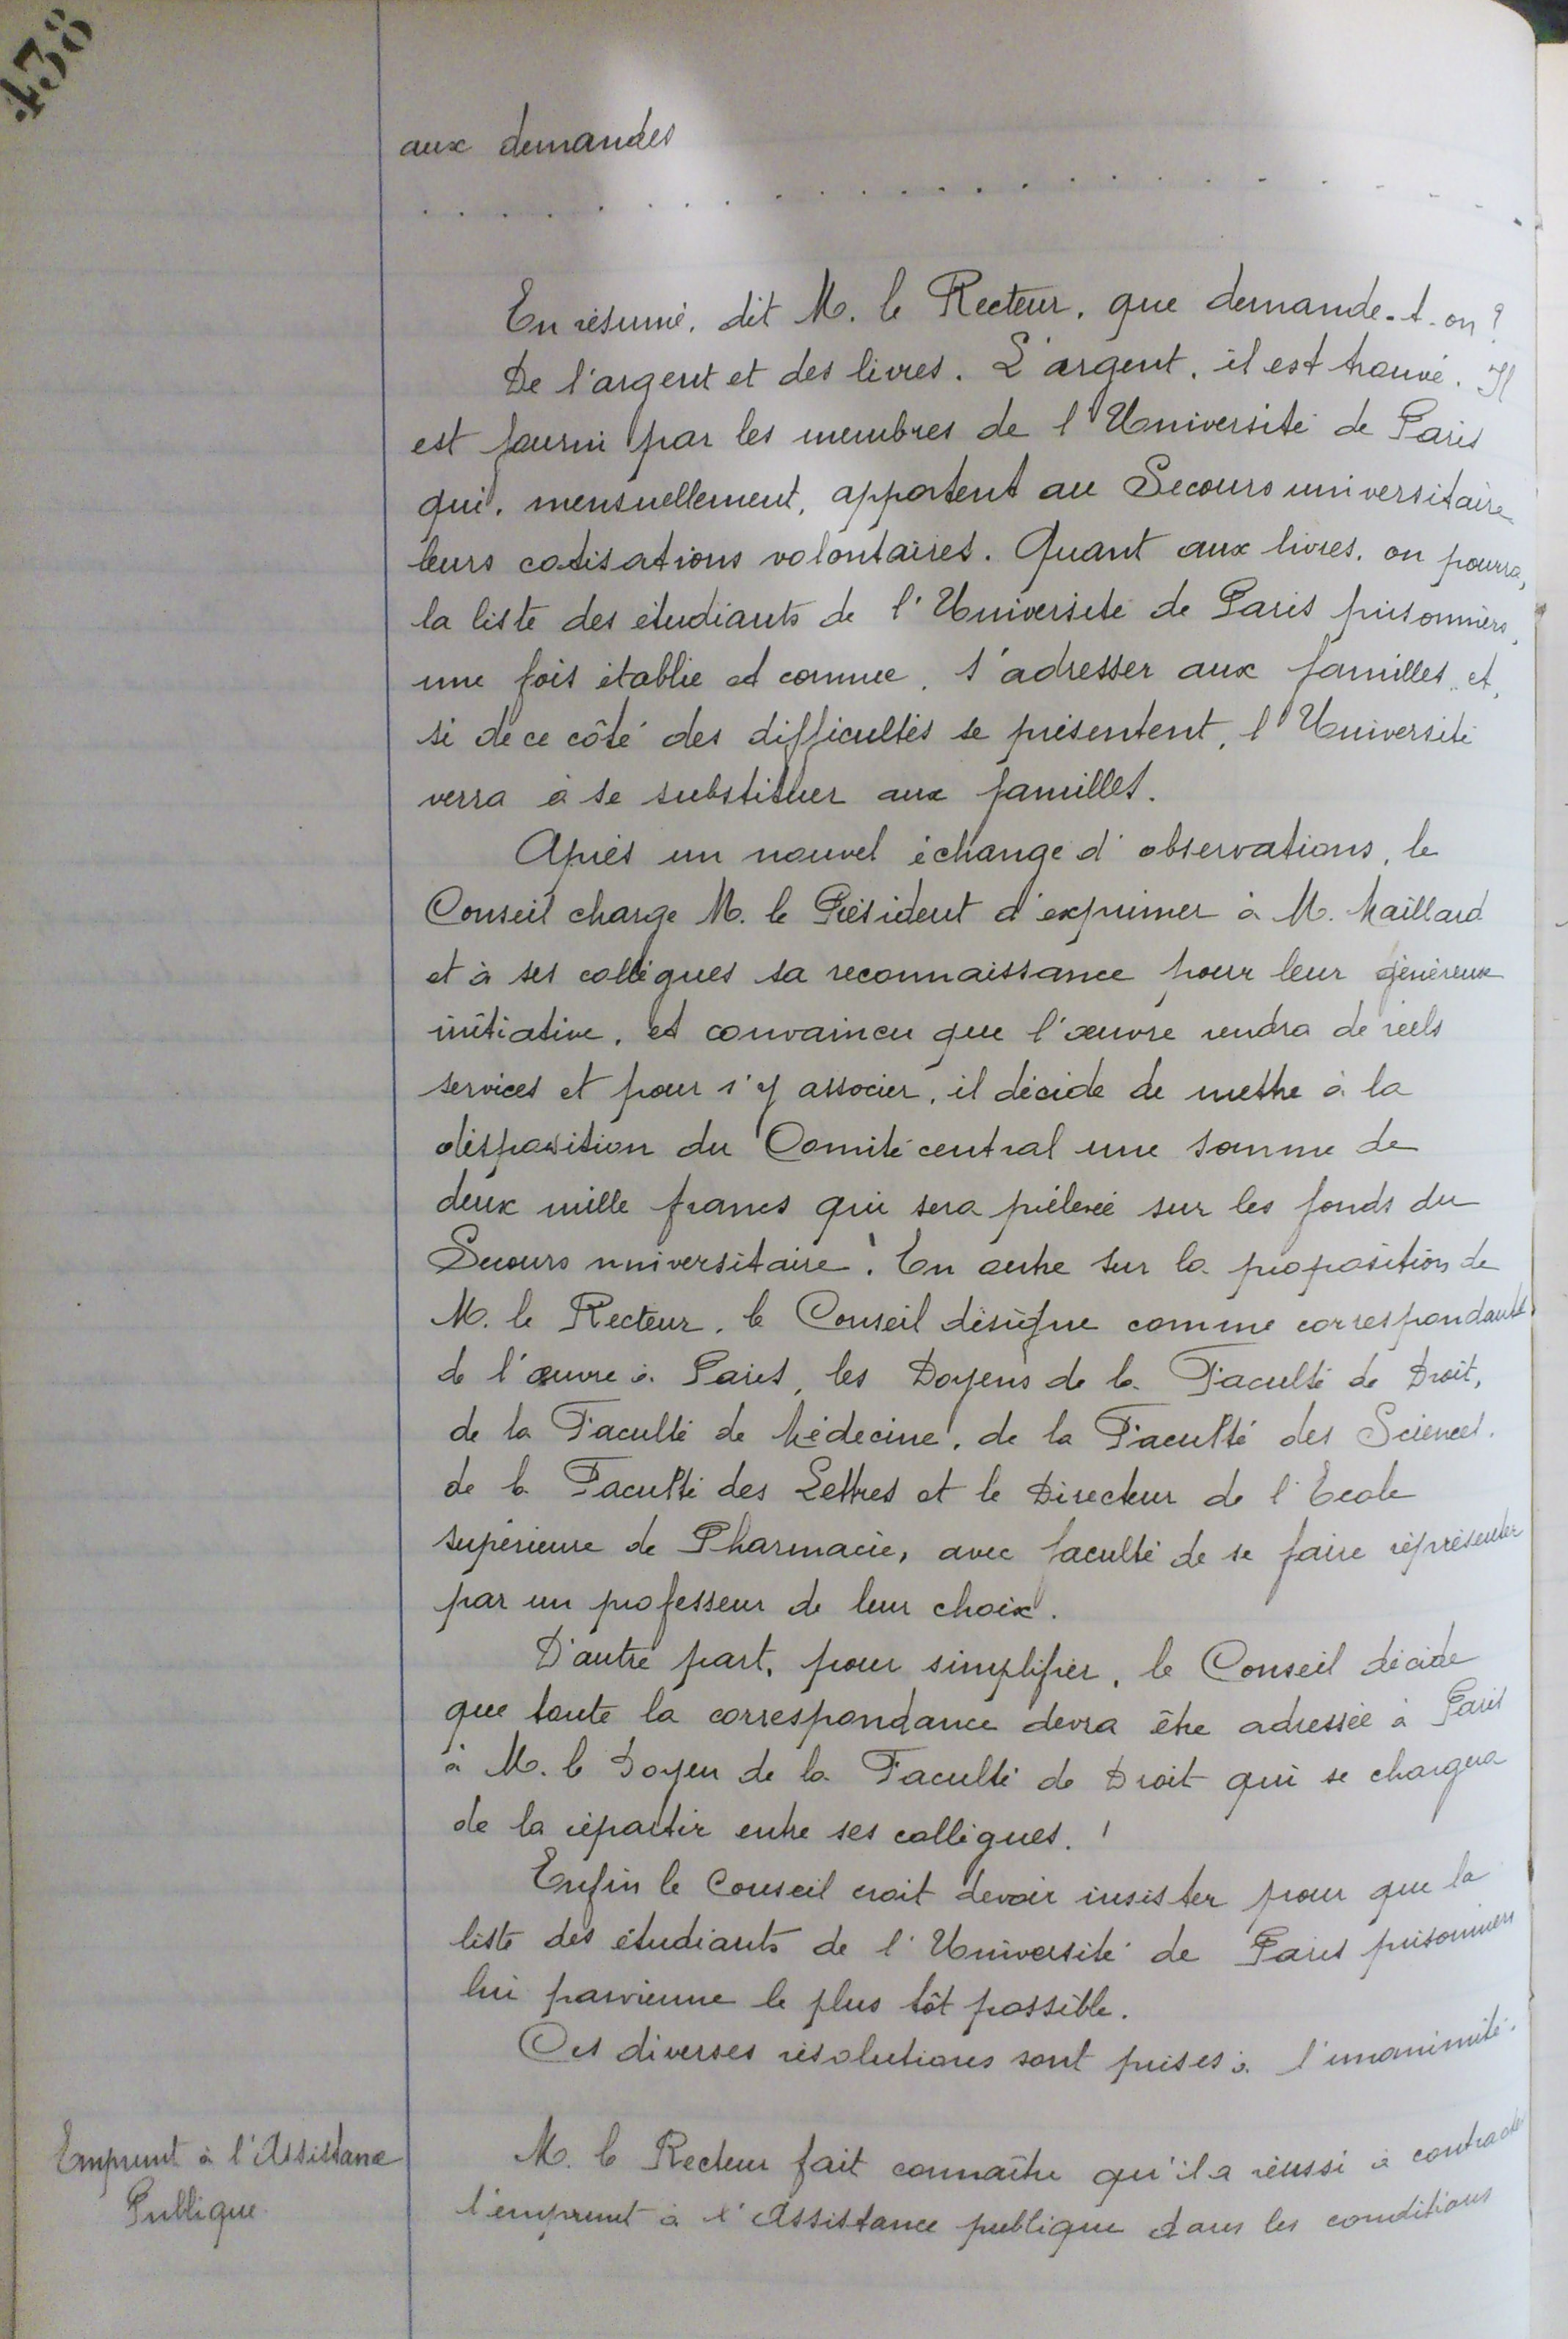 438
aux demandes
. . . . . . . . . . . . . . . . . . . . . . . .
En résumé, dit M. le Recteur, que demande-t-on ?
De l'argent et des livres. L'argent, il est trouvé. Il
est fourni par les membres de l'Université de Paris
qui, mensuellement, apportent au Secours universitaire
leurs cotisations volontaires. Quant aux livres, on pourra,
la liste des étudiants de l'Université de Paris prisonniers,
une fois établie et connue, s'adresser aux familles et,
si de ce côté des difficultés se présentent, l'Université
verra à se substituer aux familles.
Après un nouvel échange d'observations, le
Conseil charge M. le Président d'exprimer à M. Maillard
et à ses collègues sa reconnaissance pour leur généreuse
initiative, et convaincu que l'œuvre rendra de réels
services et pour s'y associer, il décide de mettre à la
disposition du Comité central une somme de
deux mille francs qui sera prélevée sur les fonds du
Secours universitaire. En outre sur la proposition de
M. le Recteur, le Conseil désigne comme correspondants
de l'œuvre à Paris, les Doyens de la Faculté de Droit,
de la Faculté de Médecine, de la Faculté des Sciences,
de la Faculté des Lettres et le Directeur de l'Ecole
supérieure de Pharmacie, avec faculté de se faire représenter
par un professeur de leur choix.
D'autre part, pour simplifier, le Conseil décide
que toute la correspondance devra être adressée à Paris
à M. le Doyen de la Faculté de Droit qui se chargera
de la répartir entre ses collègues.
Enfin le Conseil croit devoir insister pour que la
liste des étudiants de l'Université de Paris prisonniers
lui parvienne le plus tôt possible.
Ces diverses résolutions sont prises à l'unanimité.
Emprunt à l'Assistance
Publique
M. le Recteur fait connaître qu'il a réussi à contracter
l'emprunt à l'Assistance publique dans les conditions